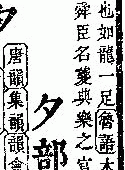 也如龍一足魯語木
舜臣名夔典樂之官
夕部
唐韻集韻韻會